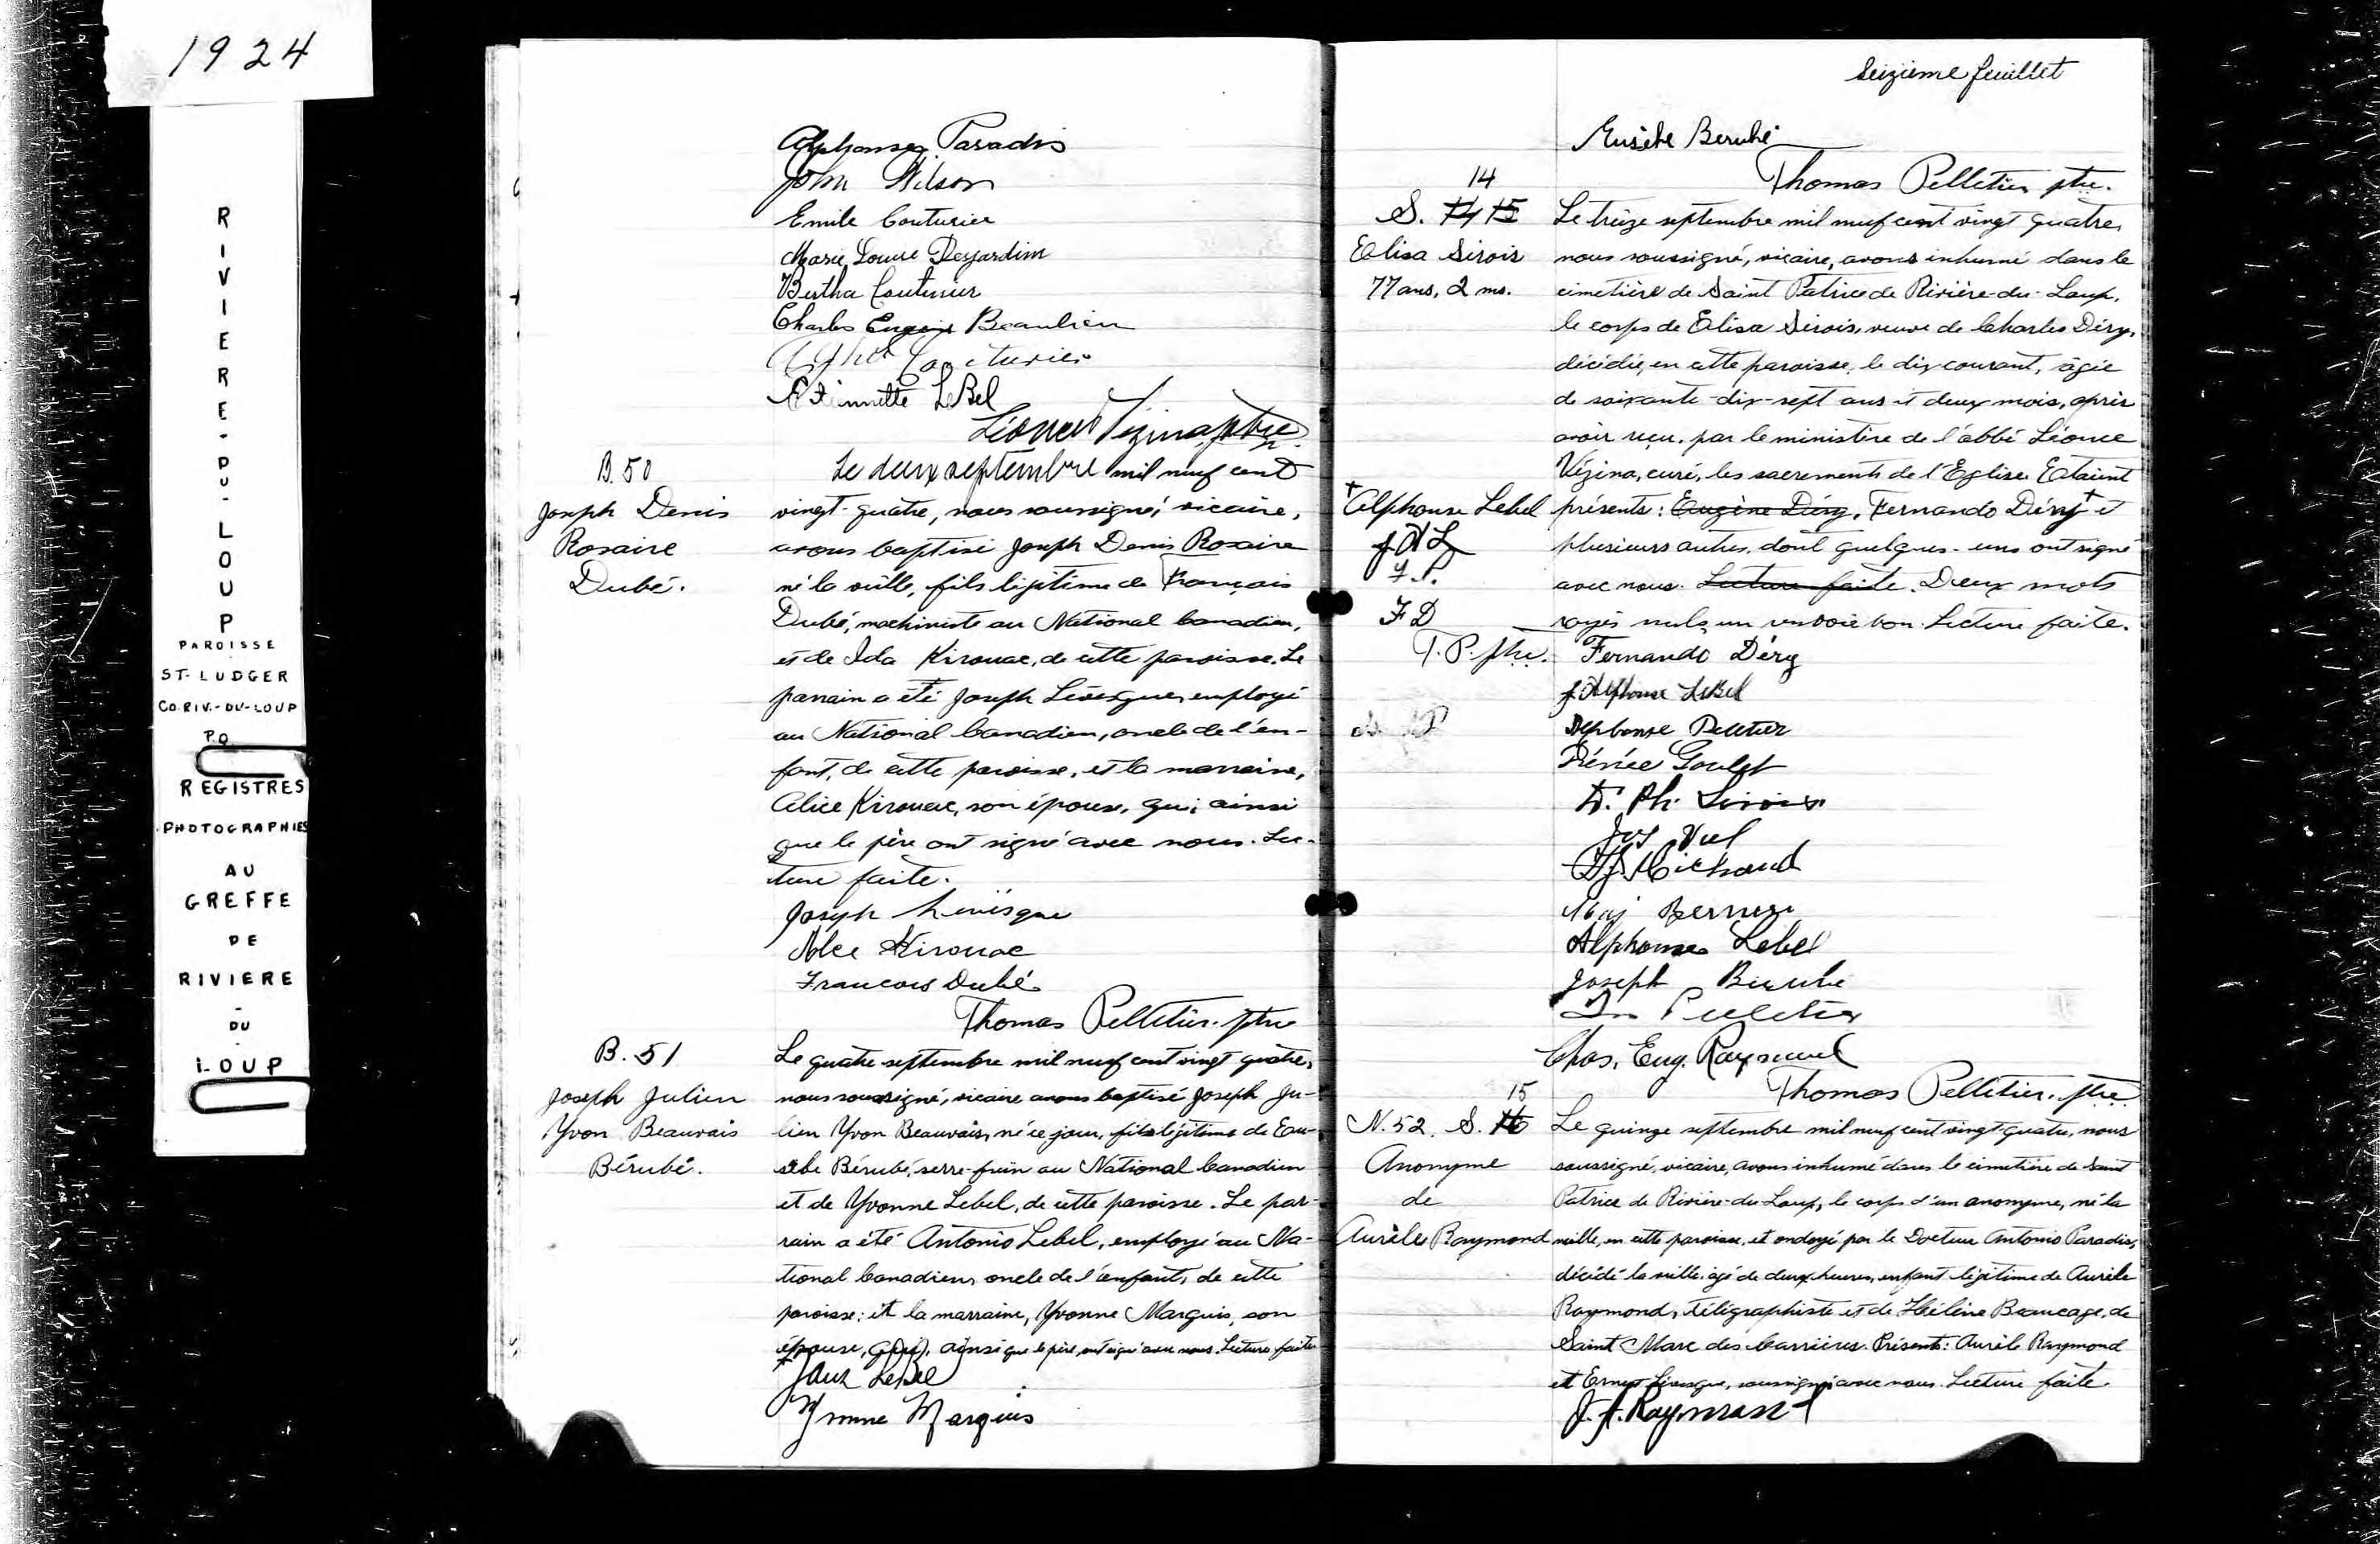 1924
RIVIERE-DU-LOUP
PAROISSE
ST-LUDGER
CO. RIV.-DU-LOUP
P.Q.
REGISTRES
PHOTOGRAPHIES
AU
GREFFE
DE
RIVIERE
-
DU
-
LOUP
Alphonse Paradis
John Wilson
Emile Couturier
Marie Louise Desjardins
Bertha Couturier
Charles Eugène Beaulieu
Couturier
LeBel
Léonce Vézina ptre
B. 50
Joseph Denis
Rosaire
Dubé.
Le deux septembre mil neuf cent
vingt-quatre, nous soussigné, vicaire,
avons baptisé Joseph Denis Rosaire
né la veille, fils légitime de François
Dubé, machiniste au National Canadien,
et de Ida Kirouac, de cette paroisse. Le
parrain a été Joseph Lévesque, employé
au National Canadien, oncle de l'en-
fant, de cette paroisse, et la marraine,
Alice Kirouac, son épouse, qui ainsi
que le père ont signé avec nous. Lec-
ture faite.
Joseph Lévèsque
Alice Kirouac
Francois Dubé
Thomas Pelletier. ptre
B. 51
Joseph Julien
Yvon Beauvais
Bérubé.
Le quatre septembre mil neuf cent vingt quatre,
nous soussigné, vicaire avons baptisé Joseph Ju-
lien Yvon Beauvais, né ce jour, fils légitime de Eu-
sèbe Bérubé, serre-frein au National Canadien
et de Yvonne Lebel, de cette paroisse. Le par-
rain a été Antonio Lebel, employé au Na-
tional Canadien, oncle de l'enfant, de cette
paroisse; et la marraine, Yvonne Marquis, son
épouse, qui, ainsi que le père, ont signé avec nous. Lecture faite
LeBel
Yvonne Marquis
Seizième feuillet
Eusèbe Berubé
Thomas Pelletier ptre.
14
S. 14 15
Elisa Sirois
77 ans, 2 ms.
Le treize septembre mil neuf cent vingt quatre,
nous soussigné, vicaire, avons inhumé dans le
cimetière de Saint Patrice de Rivière-du-Loup,
le corps de Elisa Sirois, veuve de Charles Déry,
décédée, en cette paroisse, le dix courant, âgée
de soixante-dix-sept ans et deux mois, après
avoir reçu, par le ministère de l'abbé Léonce
Vézina, curé, les sacrements de l'Eglise. Etaient
présents: Eugène Déry, Fernando Déry + et
plusieurs autres, dont quelques-uns ont signé
avec nous. Lecture faite. Deux mots
rayés nuls, un renvoie bon. Lecture faite.
+ Alphonse Lebel
J A L
F D
T. P. ptre.
Fernando Déry
J. Alphonse LeBel
Alphonse Pelletier
Goulet
Ph. Sirois
Jos Viel
Michaud
Alphonse Lebel
Joseph Berube
Pelletier
Chas. Eug. Raymond
Thomas Pelletier. ptre
15
N. 52. S. 16
Anonyme
de
Aurèle Raymond
Le quinze septembre mil neuf cent vingt-quatre, nous
soussigné, vicaire, avons inhumé dans le cimetière de Saint
Patrice de Rivière-du-Loup, le corps d'un anonyme, né la
veille, en cette paroisse, et ondoyé par le Docteur Antonio Paradis,
décédé la veille, âgé de deux heures, enfant légitime de Aurèle
Raymond, télégraphiste et de Hélène Beaucage, de
Saint Marc des Carrières. Présents: Aurèle Raymond
et Ernest Lévesque, soussignés avec nous. Lecture faite.
J. A. Raymond